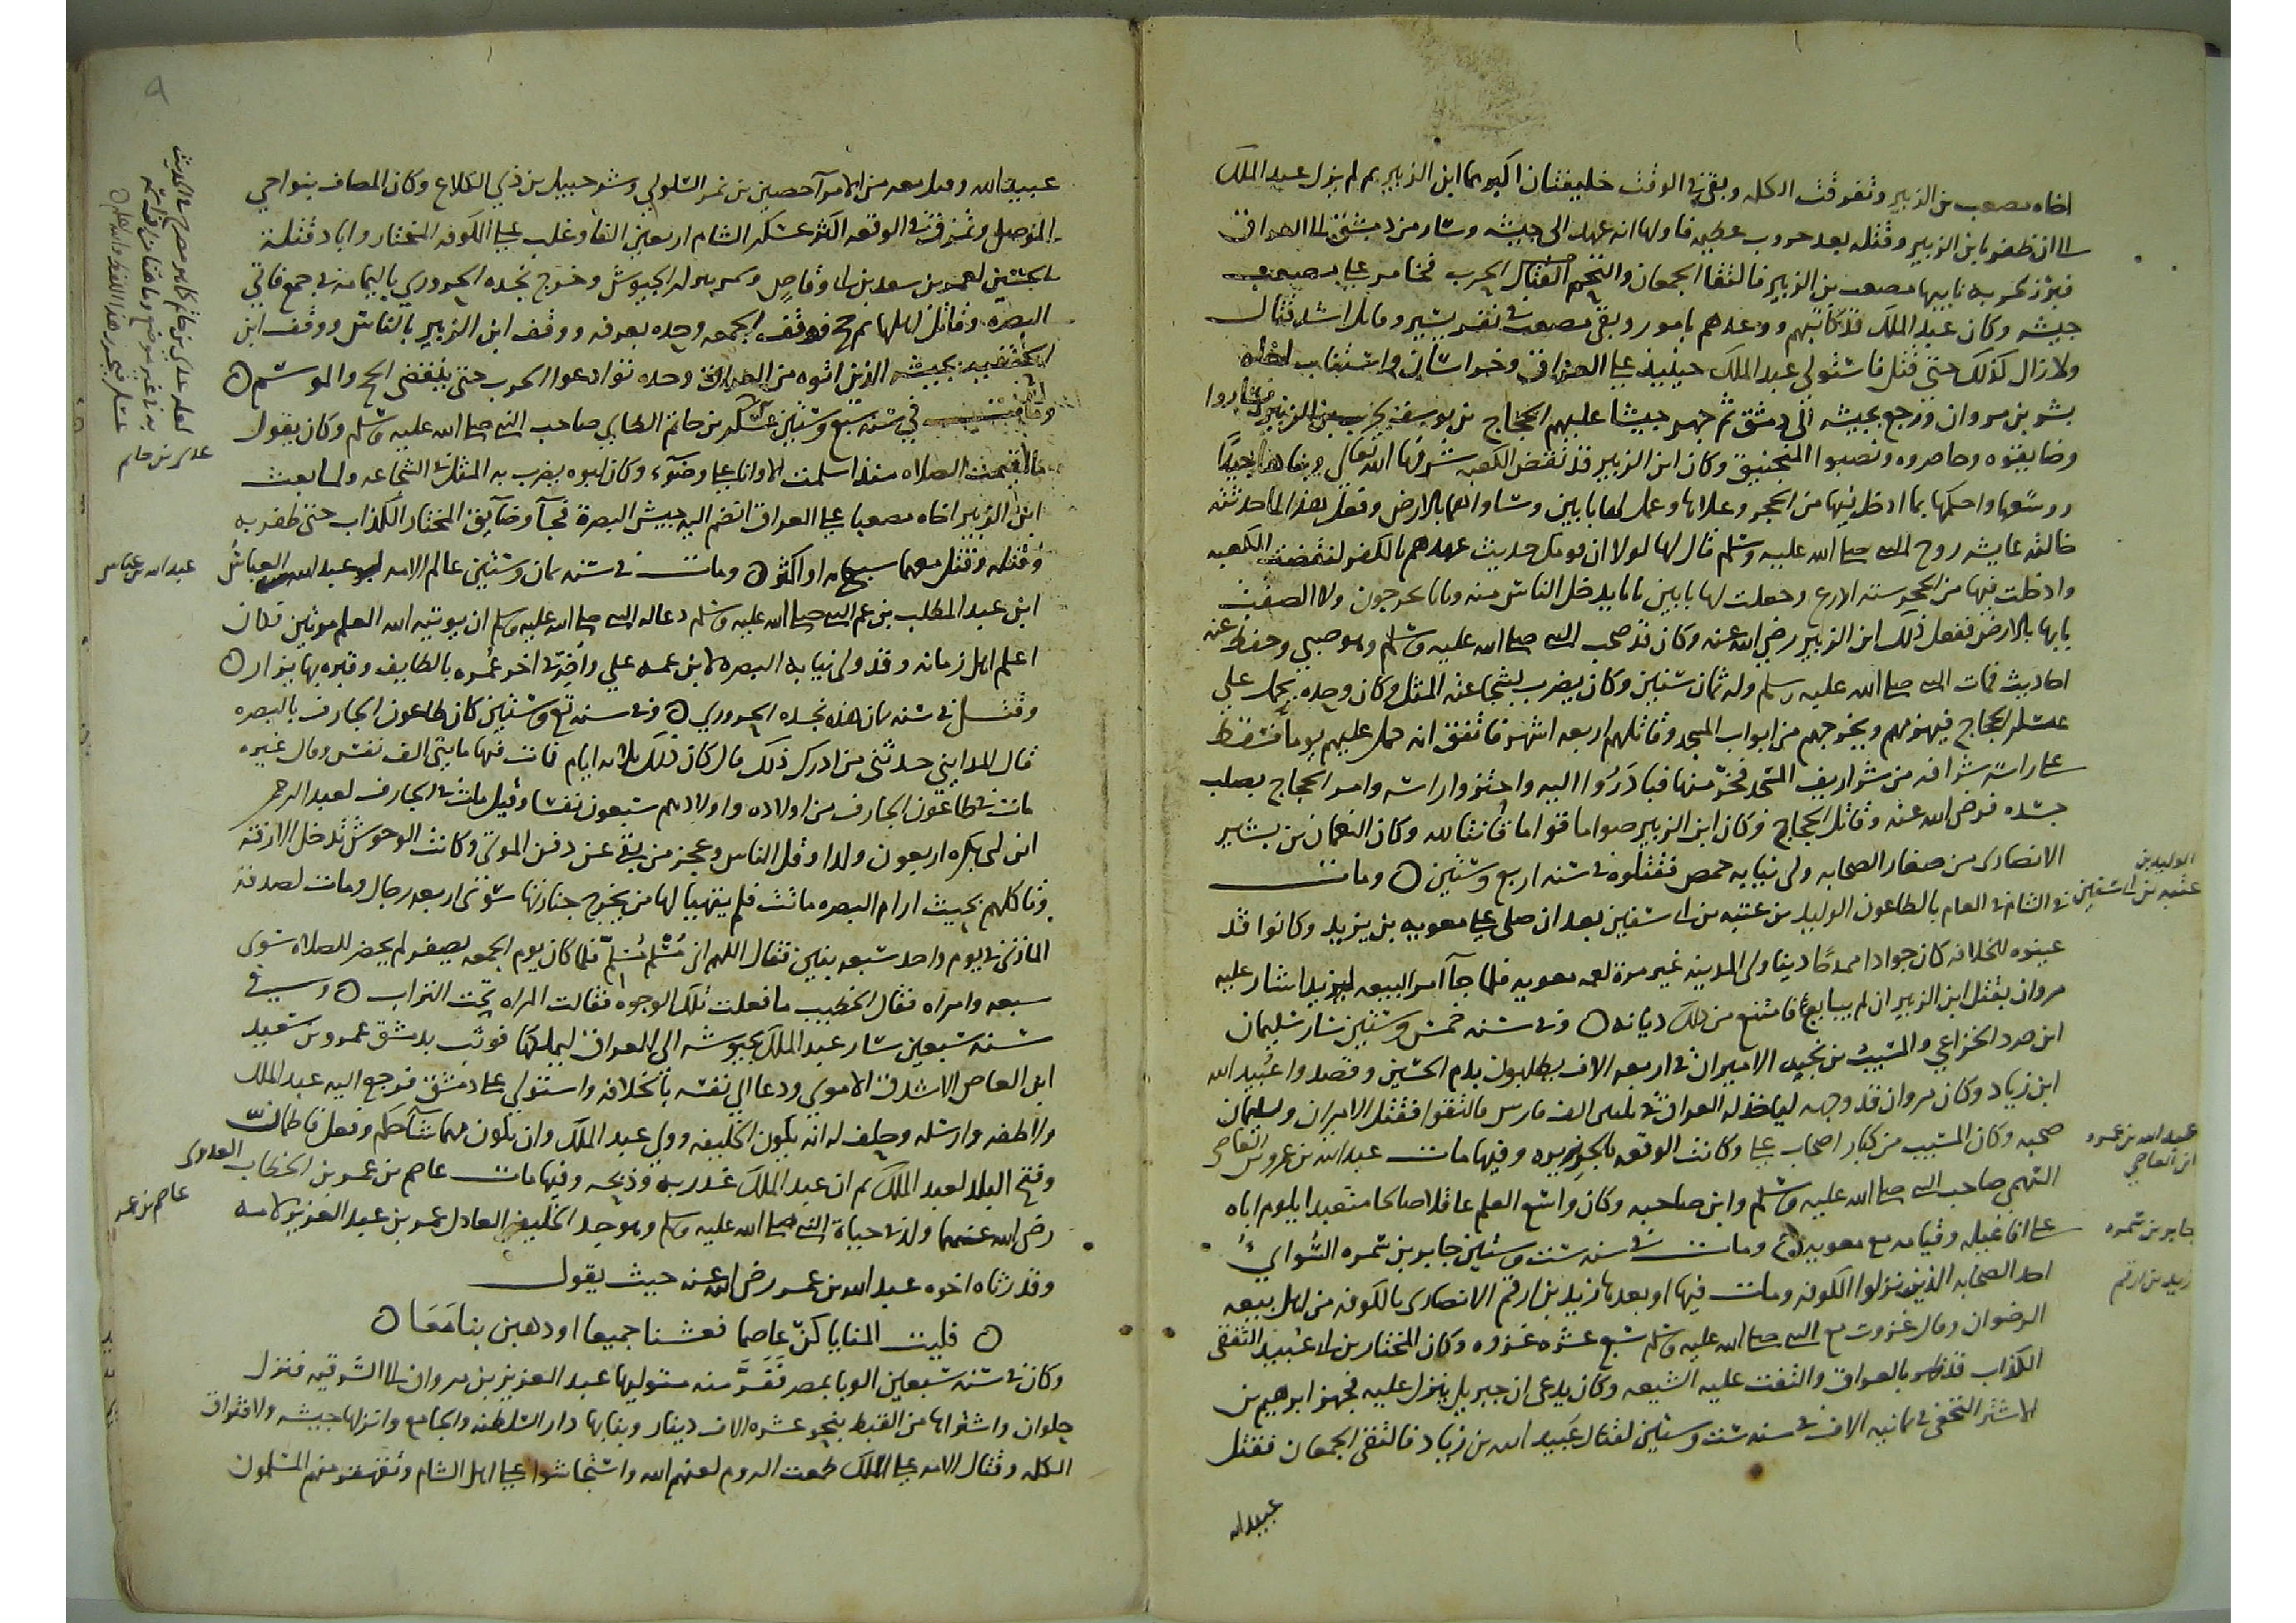 اخاه مصعب بن الزبير وتفرقت الكلمه وبقى فى الوقت خليفتان اكبرهما ابن الزبير ثم لم يزل عبد الملك
الى ان ظفر بابن الزبير وقتله بعد حروب عظيمه فاولها انه عهد الى جيشه وسار من دمشق الى العراق
فبرز لحربه نايبها مصعب بن الزبير فالتقا الجمعان والتحم القتال الحرب فخامر على مصعب
جيشه وكان عبد الملك قد كاتبهم ووعدهم بامور وبقى مصعب فى نفر يسير وقاتل اشد قتال
ولا زال كذلك حتى قتل فاستولى عبد الملك حينيذ على العراق وخراسان واستناب اخاه
بشر بن مروان ورجع بجيشه الى دمشق ثم جهز جيشا عليهم الحجاج بن يوسف لحرب بن الزبير فساروا
وضايقوه وحاصروه ونصبوا المنجنيق وكان ابن الزبير قد نقض الكعبه شرفها الله تعالى وبناها جيدًا
ووسعها واحكمها بما ادخل فيها من الحجر وعلاها وعمل لها بابين وساواهما بالارض وفعل هذا لما حدثته
خالته عايشه زوج النبى صلى الله عليه وسلم قال لها لولا ان قومك حديث عهدهم بالكفر لنقضت الكعبه
وادخلت فيها من الحجر ستة اذرع وجعلت لها بابين بابا يدخل الناس منه وبابا يخرجون ولالصقت
بابها بالارض ففعل ذلك ابن الزبير رضي الله عنه وكان قد صحب النبى صلى الله عليه وسلم وهو صبي وحفظ عنه
احاديث فمات النبى صلى الله عليه وسلم وله ثمان سنين وكان يضرب بشجاعته المثل وكان وحده يحمل على
عسكر الحجاج فيهزمهم ويخرجهم من ابواب المسجد وقاتلهم اربعه اشهر فاتفق انه حمل عليهم يوما فسقط
على راسه شرافه من شراريف المسجد فخر منها فبادروا اليه واحتزوا راسه وامر الحجاج بصلب
جسده فرضى الله عنه وقاتل الحجاج وكان ابن الزبير صواما قواما قانتا لله وكان النعمان بن بشير
الانصارى من صغار الصحابه ولى نيابه حمص فقتلوه فى سنه اربع وستين ومات
الوليد بن
عتبه بن ابى سفين
فى الشام فى العام بالطاعون الوليد بن عتبه بن ابى سفين بعد ان صلى على معويه بن يزيد وكانوا قد
عينوه للخلافه كان جوادا ممدحًا دينا ولى المدينه غير مرة لعمه معويه فلما جآ امر البيعه ليزيد اشار عليه
مروان بقتل ابن الزبير ان لم يبايع فامتنع من ذلك ديانه وفى سنه خمس وستين سار سليمان
ابن صرد الخزاعي والمسيب بن نجبه الاميران فى اربعه الاف يطلبون بدم الحسين وقصدوا عبيد الله
ابن زياد وكان مروان قد وجهه لياخذ له العراق فى ثلثين الف فارس فالتقوا فقتل الاميران وسليمان
عبد الله بن عمرو
ابن العاصي
صحبه وكان المسيب من كبار اصحاب على وكانت الوقعه بالجزيره وفيها مات عبد الله بن عمرو بن العاصى
السهمي صاحب النبى صلى الله عليه وسلم وابن صاحبه وكان واسع العلم عاقلا صالحا متعبدا يلوم اباه
جابر بن سمره
على افاعيله وقيامه مع معويه ومات فى سنه ست وستين جابر بن سمره السواي
زيد بن ارقم
احد الصحابه الذين نزلوا الكوفه ومات فيها او بعدها زيد بن ارقم الانصارى بالكوفه من اهل بيعه
الرضوان وقال غزوت مع النبى صلى الله عليه وسلم سبع عشره غزوه وكان المختار بن ابى عبيد الثقفى
الكذاب قد ظهر بالعراق والتفت عليه الشيعه وكان يدعى ان جبريل ينزل عليه فجهز ابرهيم بن
الاشتر النخعى فى ثمانيه الاف فى سنه ست وستين لقتال عبيد الله بن زياد فالتقى الجمعان فقتل
عبيد الله
٩
عبيد الله وقتل معه من الامرآ حصين بن نمير السلولي وشرحبيل بن ذي الكلاع وكان المصاف بنواحي
الموصل وتمزق فى الوقعه اكثر عسكر الشام اربعين الفا وغلب على الكوفه المختار واباد قتلة
الحسين لعمر بن سعد بن ابى وقاص وخرج نجده الحروري باليمامه فى جمع فاتي
البصره وقاتل اهلها ثم حج فوقف الجمعه وحده بعرفه ووقف ابن الزبير بالناس ووقف ابن
بجيشه الذين اتوه من العراق وحده تواعدوا الحرب حتى ينقضي الحج والموسم
وفى سنة سبع وستين عدى بن حاتم الطايي صاحب النبى صلى الله عليه وسلم وكان يقول
عدى بن حاتم
ما اقيمت الصلاه منذ اسلمت الا وانا على وضوء وكان ابوه يضرب به المثل فى الشجاعه ولما بعث
ابن الزبير اخاه مصعبا على العراق انضم اليه جيش البصرة فجآ وضايق المختار الكذاب حتى ظفر به
وقتله وقتل معهما سبع مايه او اكثر ومات فى سنه ثمان وستين عالم الامه عبد الله بن العباس
عبد الله بن عباس
ابن عبد المطلب بن عم النبى صلى الله عليه وسلم دعا له النبى صلى الله عليه وسلم ان يوتيه الله العلم مرتين فكان
اعلم اهل زمانه وقد ولى نيابه البصره لابن عمه علي وأضر فى اخر عُمره بالطايف وقبره بها يزار
وقتل فى سنه ثمان هذه نجده الحروري وفى سنه تسع وستين كان طاعون الجارف بالبصره
قال المدايني حدثنى من ادرك ذلك قال كان ذلك ثلاثه ايام فمات فيها مايتى الف نفس وقال غيره
مات فى طاعون الجارف من اولاده واولادهم سبعون نفسا وقيل مات فى الجارف لعبد الرحمن
ابن ابى بكره اربعون ولدا وقل الناس وعجز من بقى عن دفن الموتى وكانت الوحوش تدخل الازقه
وتاكلهم بحيث ان ام البصره ماتت فلم يتهيا لها من يخرج جنازتها سوى اربعه رجال ومات لصدقه
المازنى فى يوم واحد سبعه بنين فقال اللهم انى مُسْلم مُسَلِّم فلما كان يوم الجمعه لم يحضر للصلاه سوى
سبعه وامراه فقال الخطيب ما فعلت تلك الوجوه فقالت المراه تحت التراب وفى
سنة سبعين سار عبد الملك بجيوشه الى العراق ليملكها فوثب بدمشق عمرو بن سعيد
ابن العاص الاشدق الاموى ودعا الى نفسه بالخلافه واستولى على دمشق فرجع اليه عبد الملك
ولاطفه وارسله وحلف له انه يكون الخليفه وولي عبد الملك وان يكون مهما شآ حكم وفعل فاطمانّ
وفتح البلد لعبد الملك ثم ان عبد الملك غدر به وذبحه وفيها مات عاصم بن عمر بن الخطاب العدوى
عاصم بن عمر
رضى الله عنهما ولد فى حياة النبى صلى الله عليه وسلم وهو جد الخليفه العادل عمر بن عبد العزيز لامه
وقد رثاه اخوه عبد الله بن عمر رضى الله عنه حيث يقول
فليت المنايا كنّ عاصما فعشنا جميعا او ذهبن بنا مَعَا
وكان فى سنه سبعين الوبا بمصر فَفَرَّ منه متوليها عبد العزيز بن مروان الى الشرقيه فنزل
حلوان واشتراها من القبط بنحو عشره الاف دينار وبنا بها دار السلطنه والجامع وانزلها جيشه ولافتراق
الكلمه وقتال الامه على الملك طمعت الروم لعنهم الله واستجاشوا على اهل الشام وتقهقر منهم المسلمون